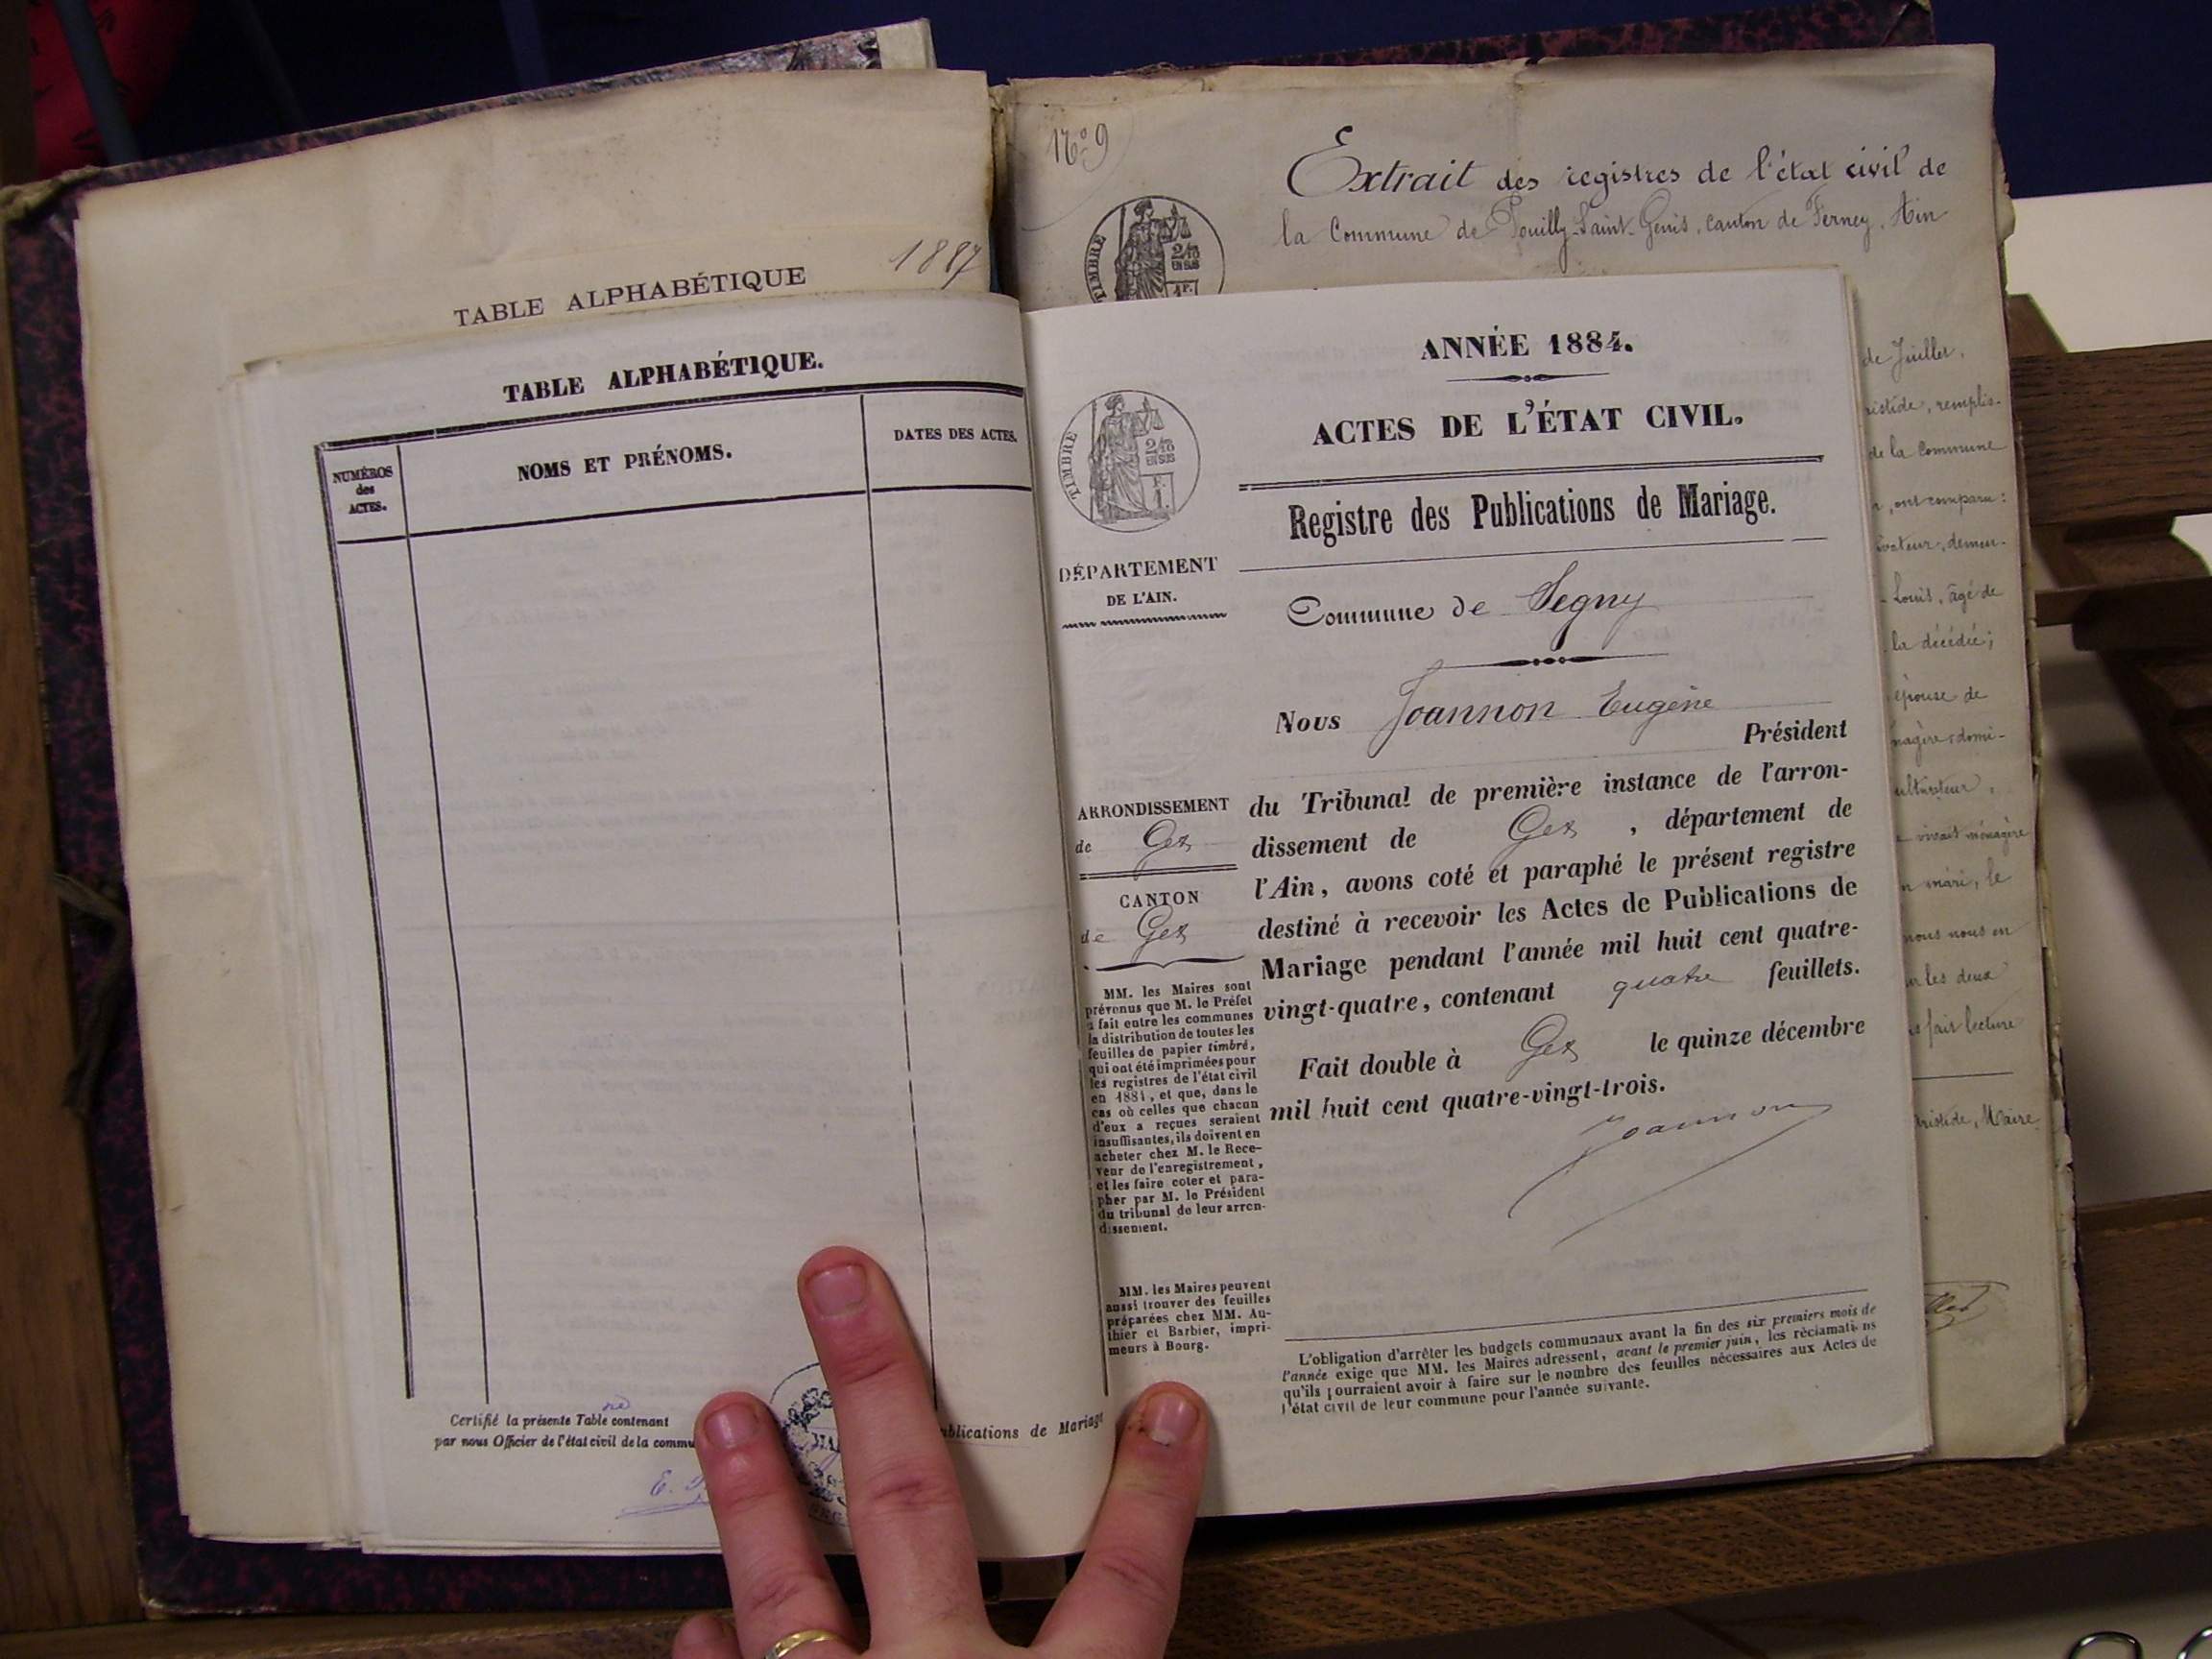 1887
TABLE ALPHABÉTIQUE
TABLE ALPHABÉTIQUE.
NUMÉROS
des
ACTES.
NOMS ET PRÉNOMS.
DATES DES ACTES.
Certifié la présente Table contenant
par nous Officier de l'état civil de la commu
blications de Mariage
N° 9
Extrait des registres de l'état civil de
la Commune de Pouilly-Saint-Genis, canton de Ferney, Ain
TIMBRE
2/10
EN SUS
1F.
ANNÉE 1884.
ACTES DE L'ÉTAT CIVIL.
TIMBRE
2/10
EN SUS
F.
1.
Registre des Publications de Mariage.
DÉPARTEMENT
DE L'AIN.
Commune de Segny
Nous Joannon Eugène
Président
du Tribunal de première instance de l'arron-
dissement de Gex, département de
l'Ain, avons coté et paraphé le présent registre
destiné à recevoir les Actes de Publications de
Mariage pendant l'année mil huit cent quatre-
vingt-quatre, contenant quatre feuillets.
Fait double à Gex le quinze décembre
mil huit cent quatre-vingt-trois.
Joannon
ARRONDISSEMENT
de Gex
CANTON
de Gex
MM. les Maires sont
prévenus que M. le Préfet
a fait entre les communes
la distribution de toutes les
feuilles de papier timbré,
qui ont été imprimées pour
les registres de l'état civil
en 1881, et que, dans le
cas où celles que chacun
d'eux a reçues seraient
insuffisantes, ils doivent en
acheter chez M. le Rece-
veur de l'enregistrement,
et les faire coter et para-
pher par M. le Président
du tribunal de leur arron-
dissement.
MM. les Maires peuvent
aussi trouver des feuilles
préparées chez MM. Au-
thier et Barbier, impri-
meurs à Bourg.
L'obligation d'arrêter les budgets communaux avant la fin des six premiers mois de
l'année exige que MM. les Maires adressent, avant le premier juin, les réclamations
qu'ils pourraient avoir à faire sur le nombre des feuilles nécessaires aux Actes de
l'état civil de leur commune pour l'année suivante.
de Juillet,
ristide, remplis-
de la Commune
, ont comparu :
vateur, demeu-
Louis, âgé de
la décédée;
épouse de
nagère domi-
ultivateur,
vivait ménagère
mari, le
nous nous en
les deux
fait lecture
ristide, Maire